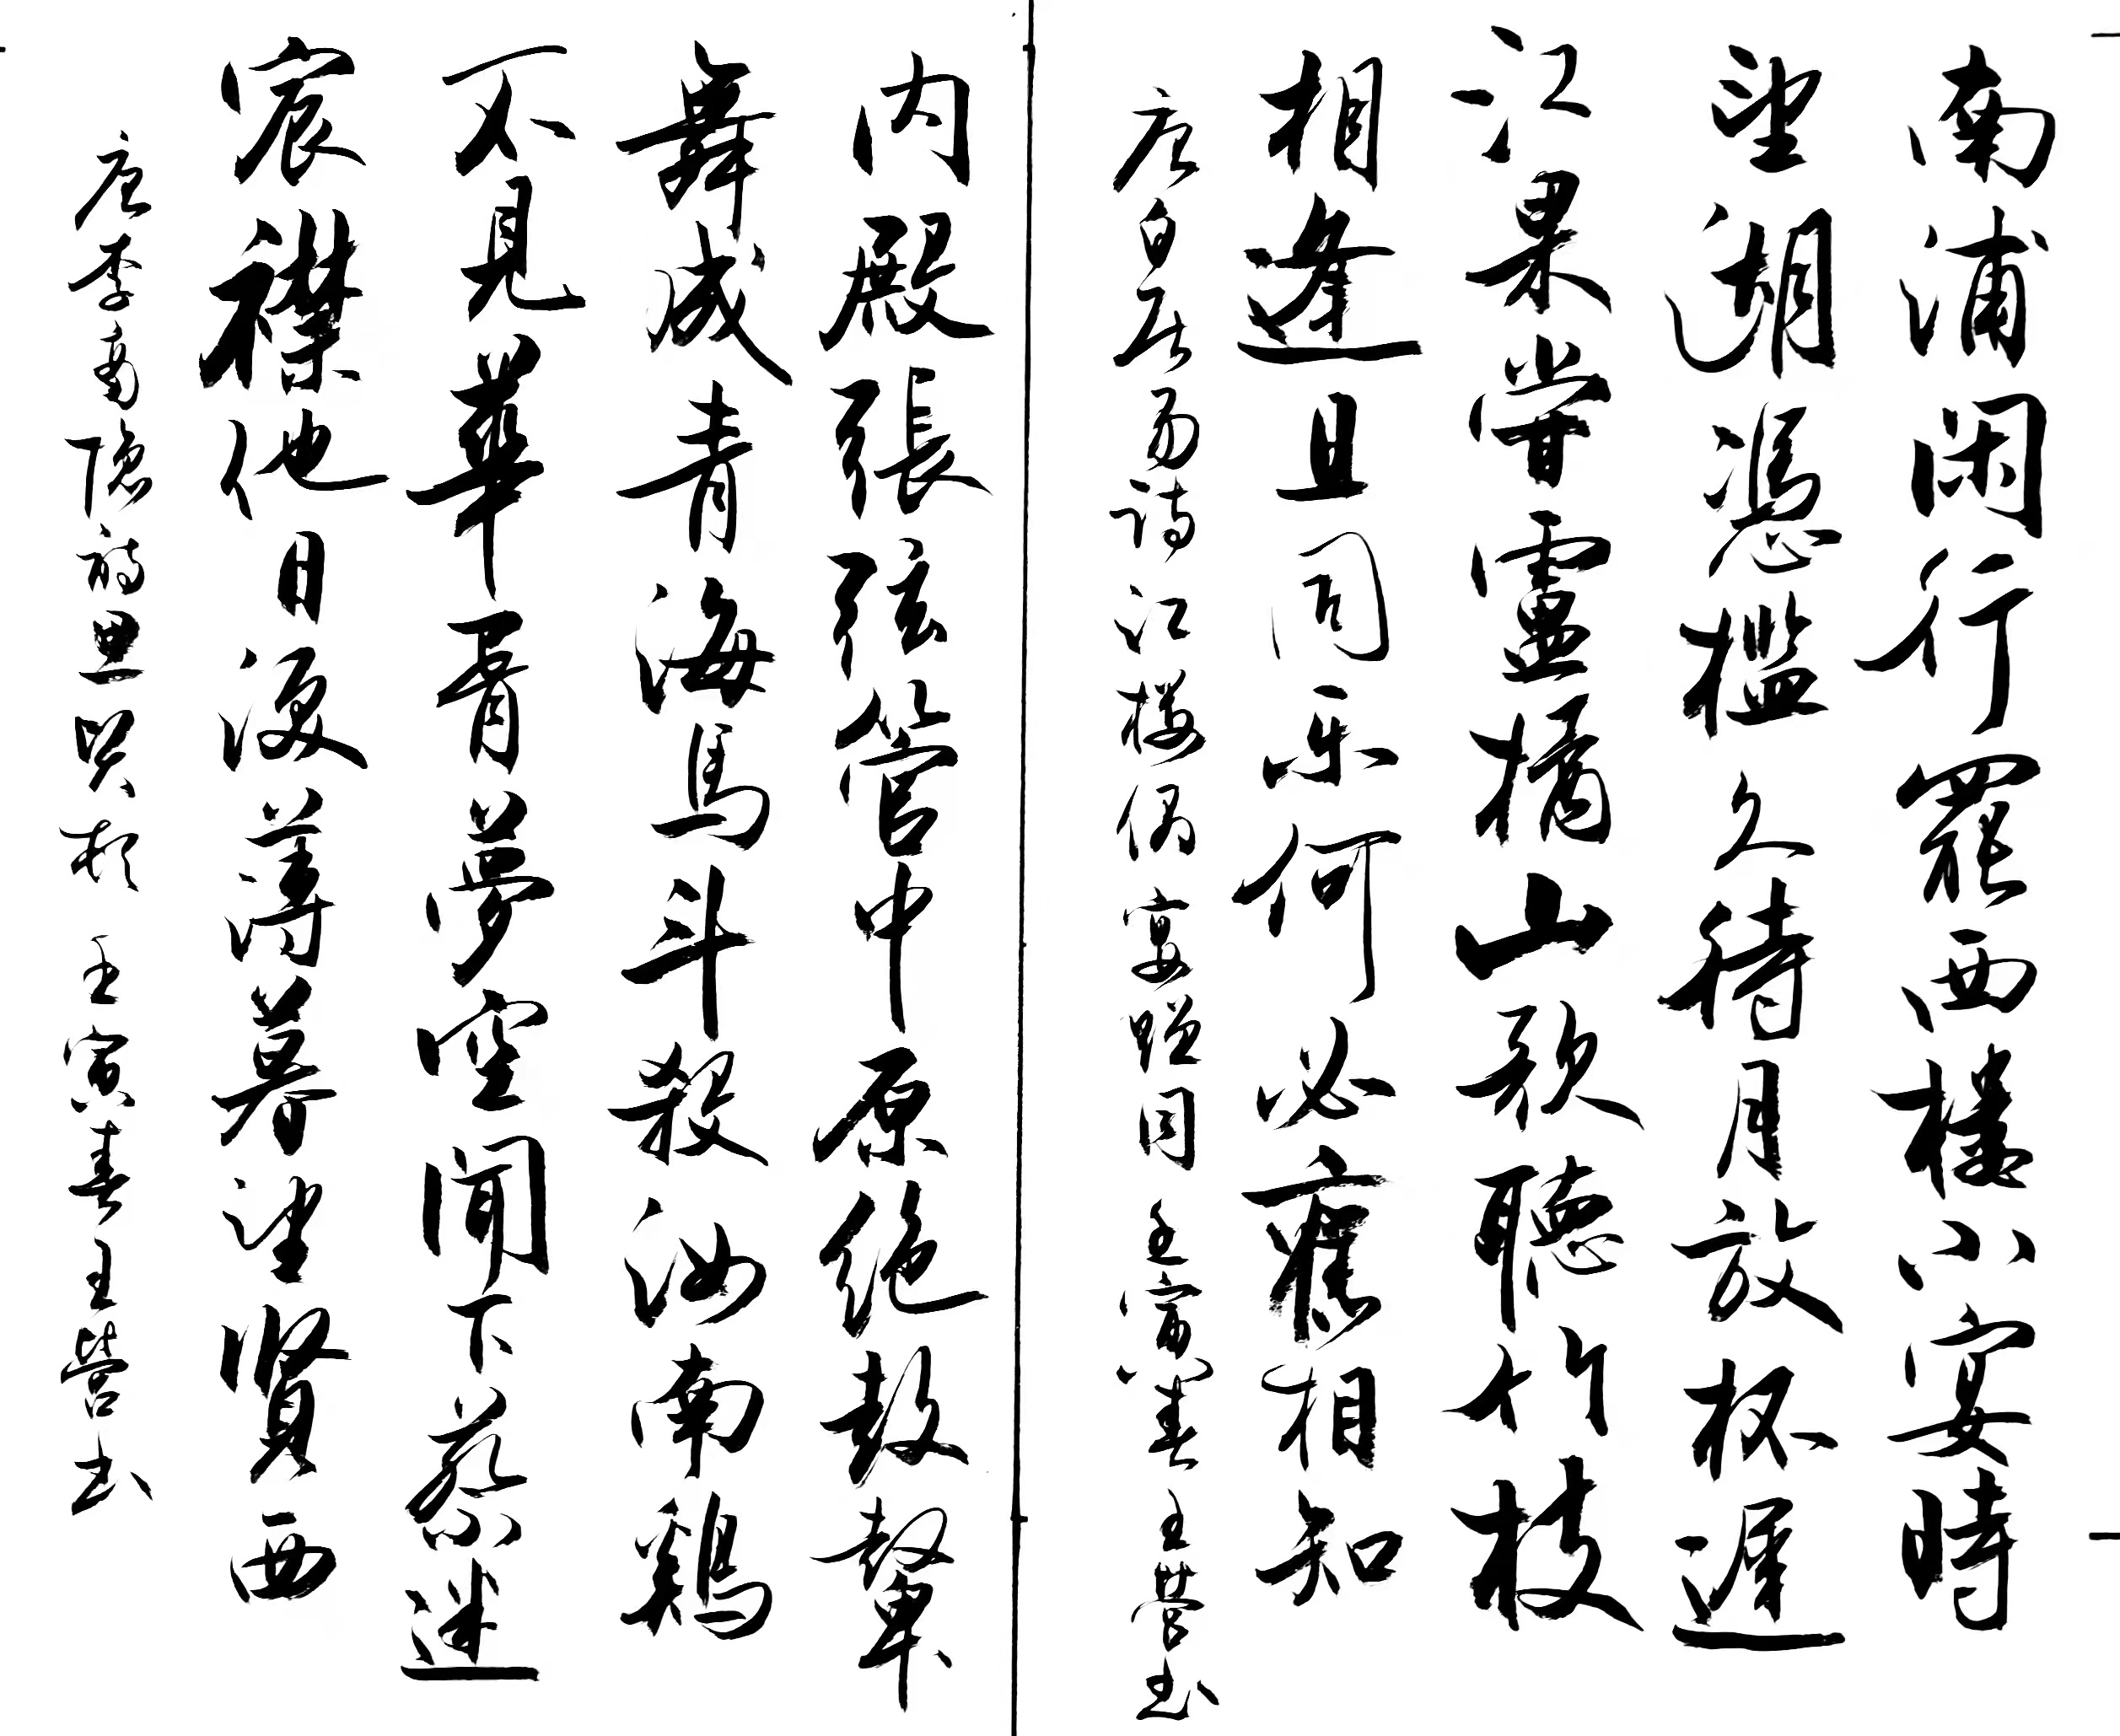 南浦闲行罷西樓小宴時
望湖憑檻久待月放杯遲
江果嘗盧橘山歌聽竹枝
相逢且同樂何必舊相知
唐白居易詩江樓偶宴贈同 壬寅春王書
内殿張弦管中原絕鼓鼙
舞成青海馬斗殺汝南鷄
不見華胥夢空聞下蔡迷
宸襟他日淚薄暮望賢西
唐李商隱詩思賢頓 壬寅春王書